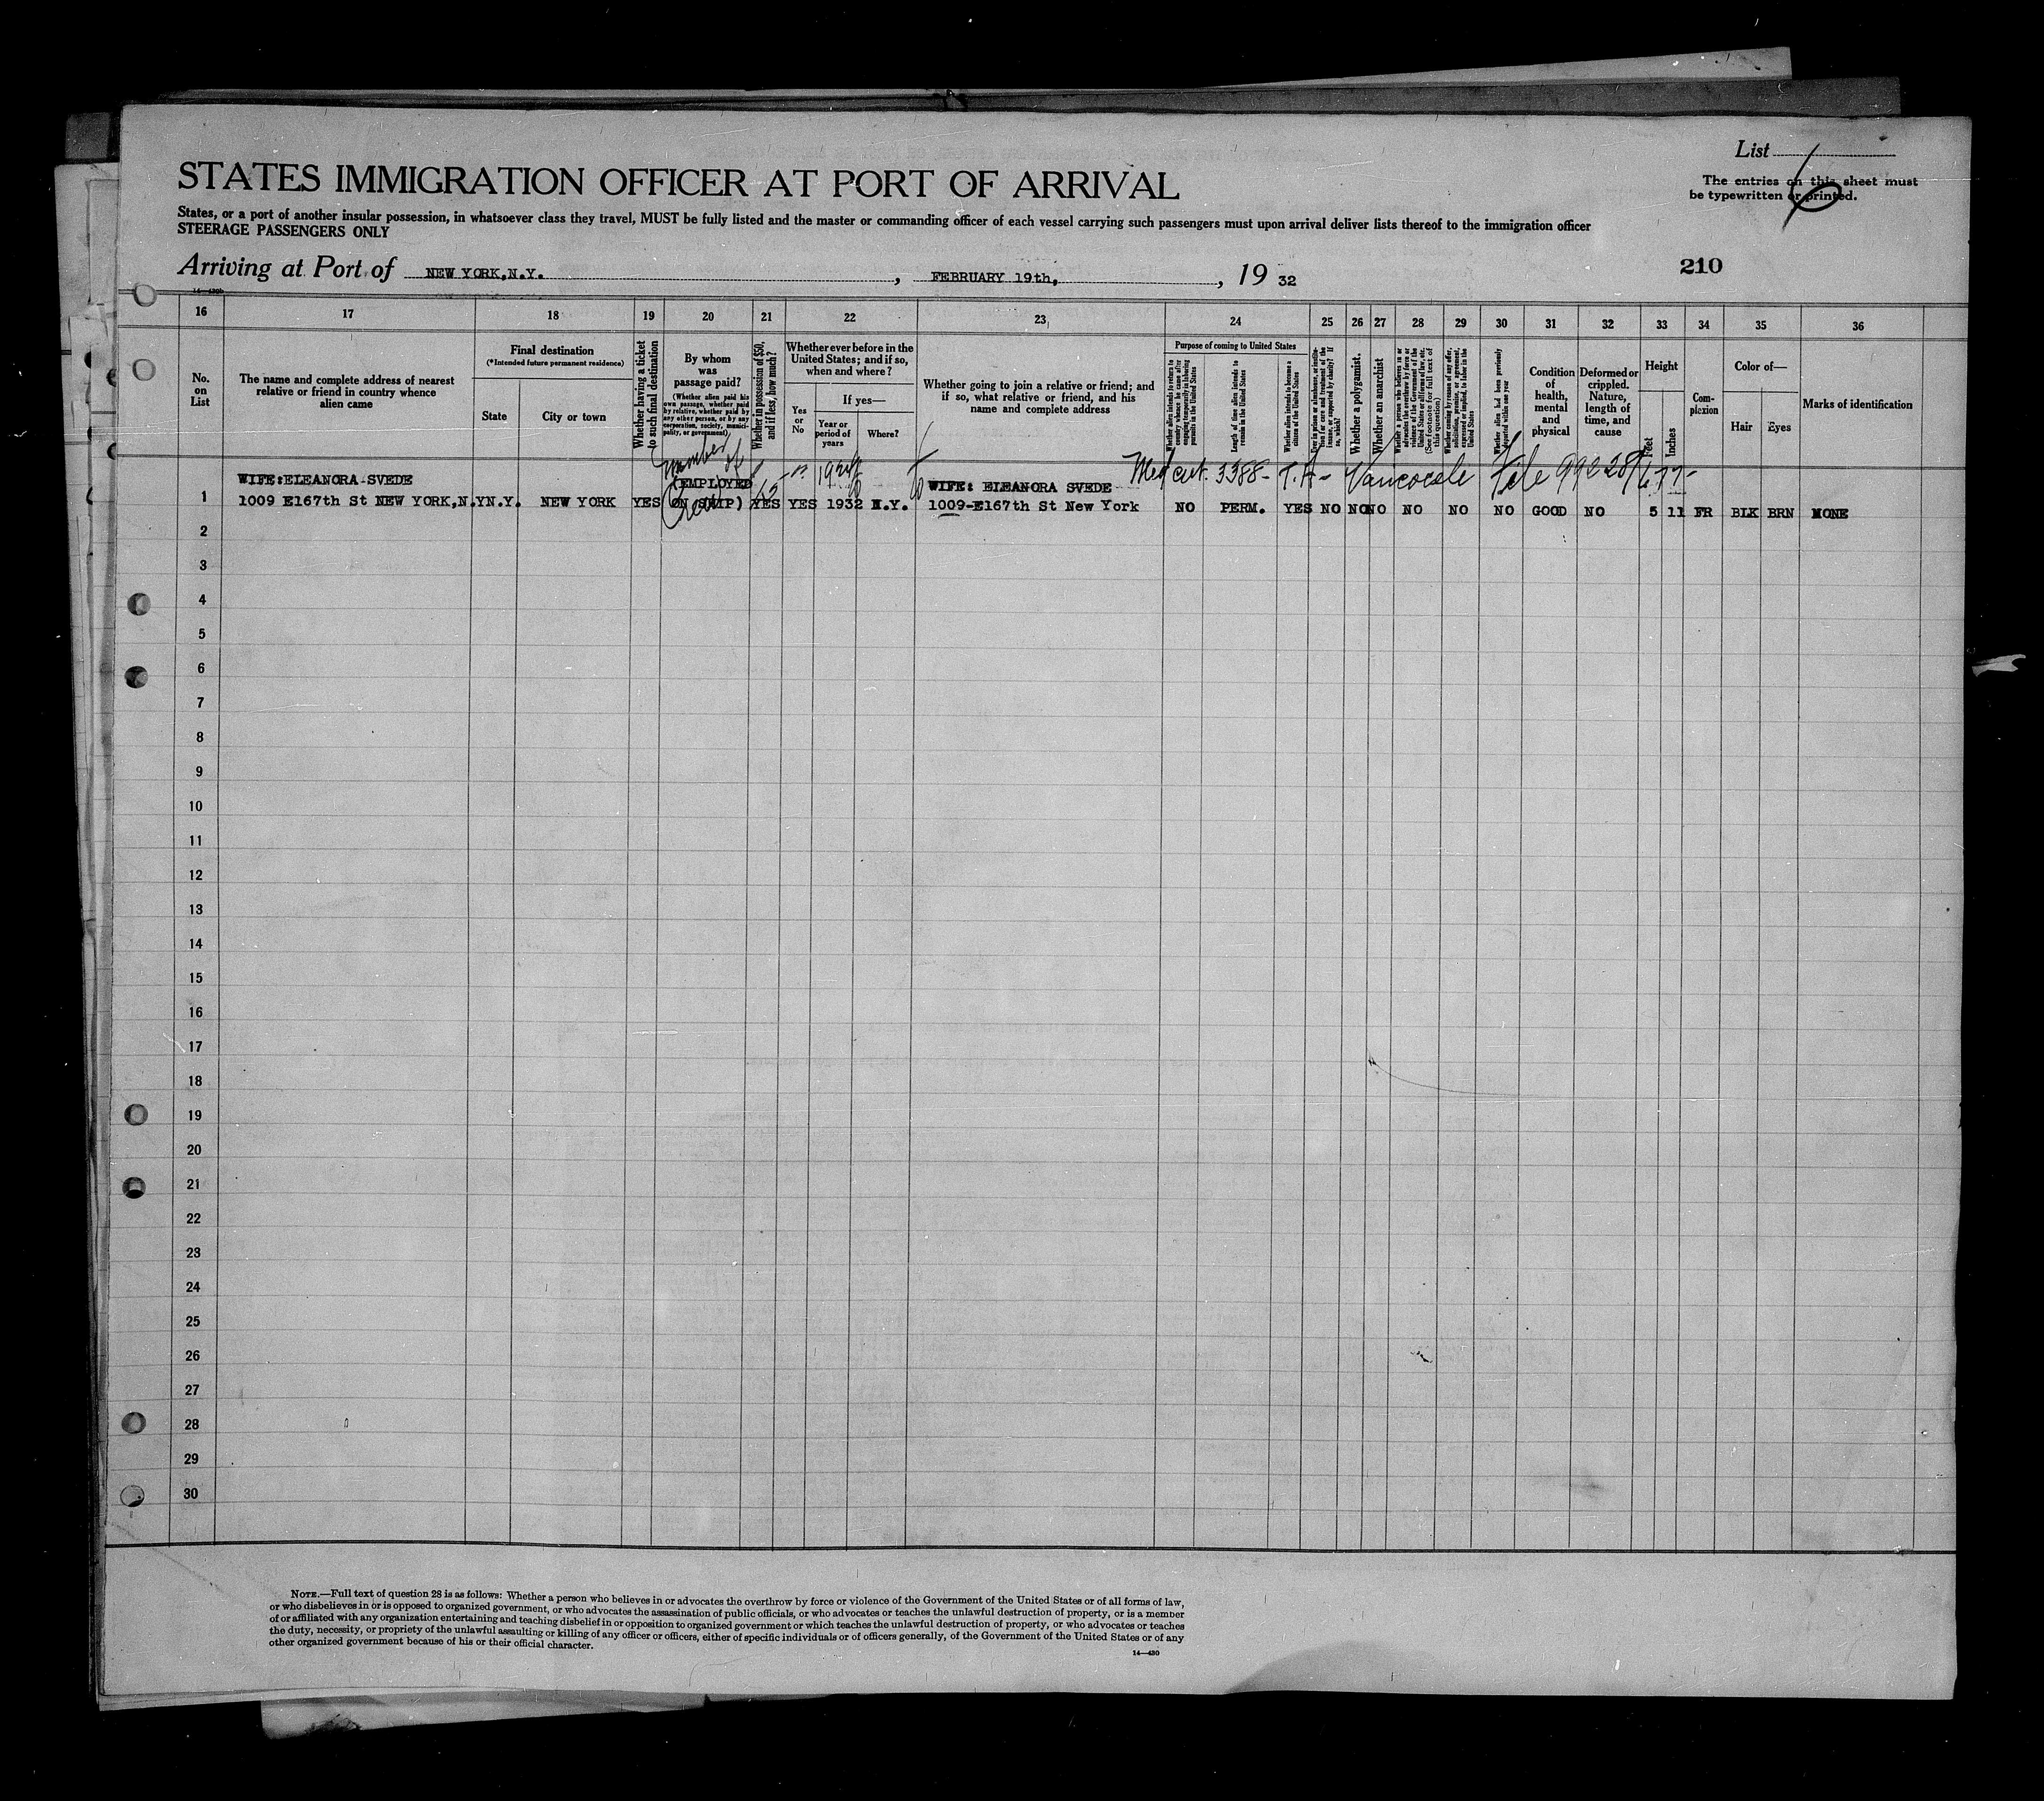 List
The entries on this sheet must
be typewritten or printed.
STATES IMMIGRATION OFFICER AT PORT OF ARRIVAL
States, or a port of another insular possession, in whatsoever class they travel, MUST be fully listed and the master or commanding officer of each vessel carrying such passengers must upon arrival deliver lists thereof to the immigration officer
STEERAGE PASSENGERS ONLY
Arriving at Port of NEW YORK,N.Y., FEBRUARY 19th, 19 32
210
14—430b
16 17 18 19 20 21 22 23 24 25 26 27 28 29 30 31 32 33 34 35 36
No. on List
The name and complete address of nearest relative or friend in country whence alien came
Final destination
(*Intended future permanent residence)
State
City or town
Whether having a ticket to such final destination
By whom was passage paid?
(Whether alien paid his own passage, whether paid by relative, whether paid by any other person, or by any corporation, society, municipality, or government)
Whether in possession of $50, and if less, how much?
Whether ever before in the United States; and if so, when and where?
Yes or No
If yes—
Year or period of years
Where?
Whether going to join a relative or friend; and if so, what relative or friend, and his name and complete address
Purpose of coming to United States
Whether alien intends to return to country whence he came after engaging temporarily in laboring pursuits in the United States
Length of time alien intends to remain in the United States
Whether alien intends to become a citizen of the United States
Ever in prison or almshouse, or institution for care and treatment of the insane, or supported by charity? If so, which?
Whether a polygamist.
Whether an anarchist
Whether a person who believes in or advocates the overthrow by force or violence of the Government of the United States or all forms of law, etc. (See footnote for full text of this question)
Whether coming by reason of any offer, solicitation, promise, or agreement, expressed or implied, to labor in the United States
Whether alien had been previously deported within one year
Condition of health, mental and physical
Deformed or crippled. Nature, length of time, and cause
Height
Feet
Inches
Complexion
Color of—
Hair
Eyes
Marks of identification
member of 1924 Med cert. 3388- T.A- File 99228/677-
WIFE:ELEANORA SVEDE (EMPLOYED WIFE: ELEANORA SVEDE
1 1009 E167th St NEW YORK,N.Y N.Y. NEW YORK YES ON SHIP) YES YES 1932 N.Y. 1009-E167th St New York NO PERM. YES NO NO NO NO NO NO GOOD NO 5 11 FR BLK BRN NONE
2
3
4
5
6
7
8
9
10
11
12
13
14
15
16
17
18
19
20
21
22
23
24
25
26
27
28
29
30
NOTE.—Full text of question 28 is as follows: Whether a person who believes in or advocates the overthrow by force or violence of the Government of the United States or of all forms of law,
or who disbelieves in or is opposed to organized government, or who advocates the assassination of public officials, or who advocates or teaches the unlawful destruction of property, or is a member
of or affiliated with any organization entertaining and teaching disbelief in or opposition to organized government or which teaches the unlawful destruction of property, or who advocates or teaches
the duty, necessity, or propriety of the unlawful assaulting or killing of any officer or officers, either of specific individuals or of officers generally, of the Government of the United States or of any
other organized government because of his or their official character.
14—430